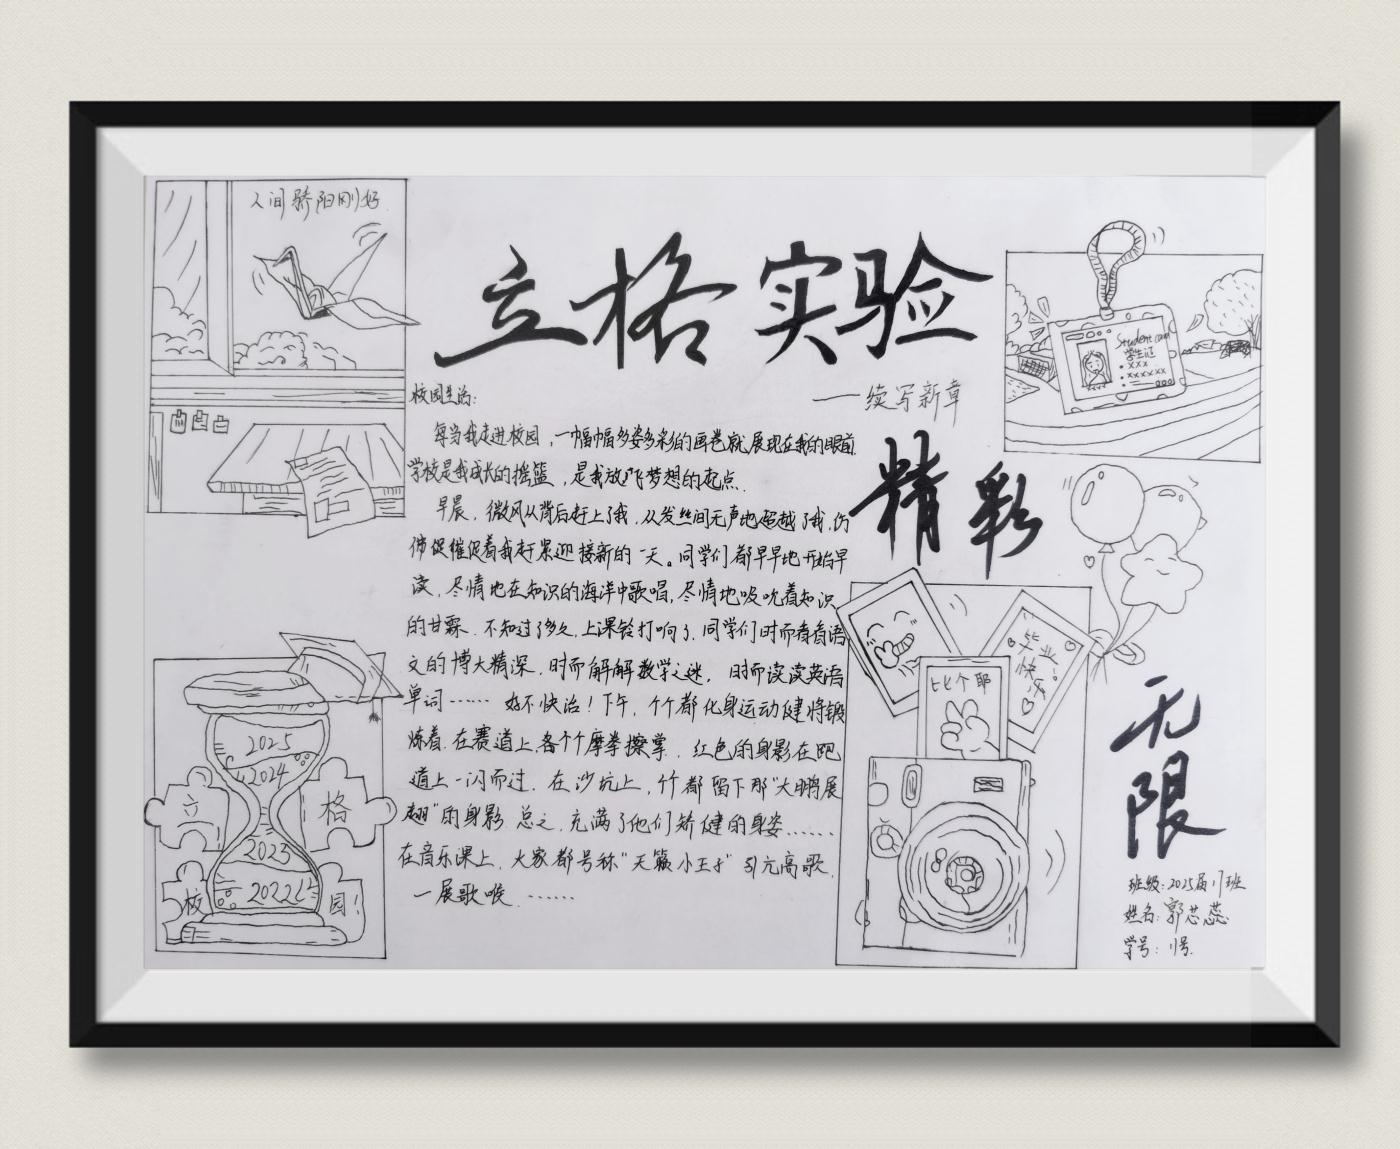 人间骄阳刚好
立格实验
——续写新章
精彩
无限
Student card
学生证
xxx
xxxxxx
校园生活:
每当我走进校园,一幅幅多姿多彩的画卷就展现在我的眼前.
学校是我成长的摇篮,是我放飞梦想的起点.
早晨,微风从背后赶上了我,从发丝间无声地超越了我,仿
佛促催促着我赶紧迎接新的一天。同学们都早早地开始早
读,尽情地在知识的海洋中歌唱,尽情地吸吮着知识
的甘霖.不知过了多久,上课铃打响了.同学们时而看看语
文的博大精深,时而解解数学之迷,时而读读英语
单词……好不快治!下午,个个都化身运动健将锻
炼着.在赛道上,各个个摩拳擦掌.红色的身影在跑
道上一闪而过.在沙坑上,个都留下那"大鹏展
翅"的身影 总之,充满了他们矫健的身姿……
在音乐课上,大家都号称"天籁小王子"引亢高歌.
一展歌喉.……
毕业
快乐。
比个耶
2025
2024
2023
2022
立
格
校
园!
班级:2025届11班
姓名:郭芯蕊
学号:11号.